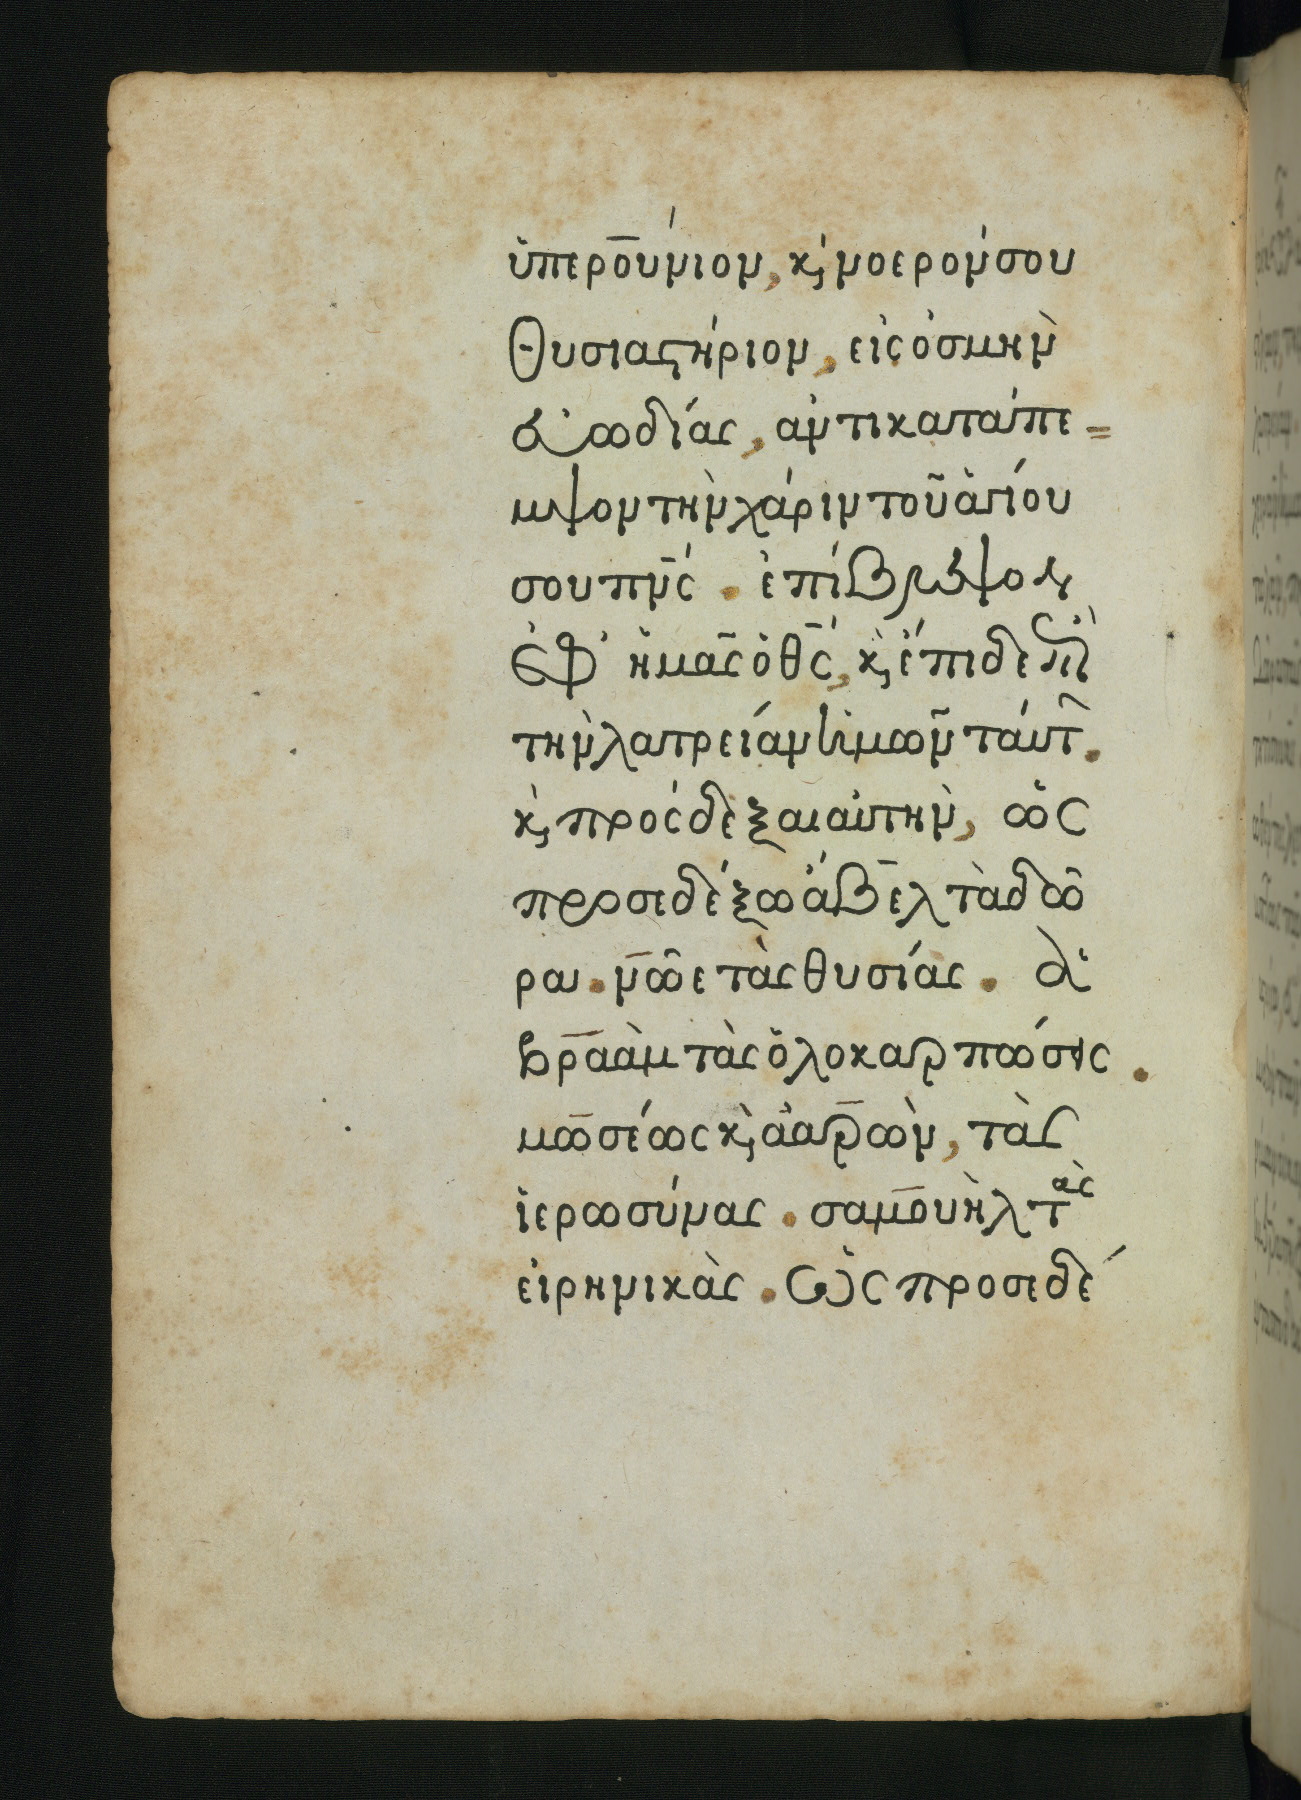 ὑπερουνιον, κ, νοερον σου
Θυσιαςήριον, εἰς ὀσμὴν
εὐωδίας, ἀντικατάπε=
μψον τὴν χάριν τοῦ ἁγίου
σου πνς. ἐπίβλεψον
ἐφ' ἡμᾶς ὁ θς, κ, ἔπιδε ἐπὶ
τὴν λατρείαν ἡμῶν ταύτ.
κ, πρόσδεξαι αὐτὴν, ὡς
προσεδέξω ἄβελ τὰ δῶ
ρα. νῶε τὰς θυσίας. ἀ
βραὰμ τὰς ὁλοκαρπώσεις.
μωσέως κ, ἀαρὼν, τὰς
ἱερωσύνας. σαμουὴλ τὰς
εἰρηνικὰς. ὡς προσεδέ